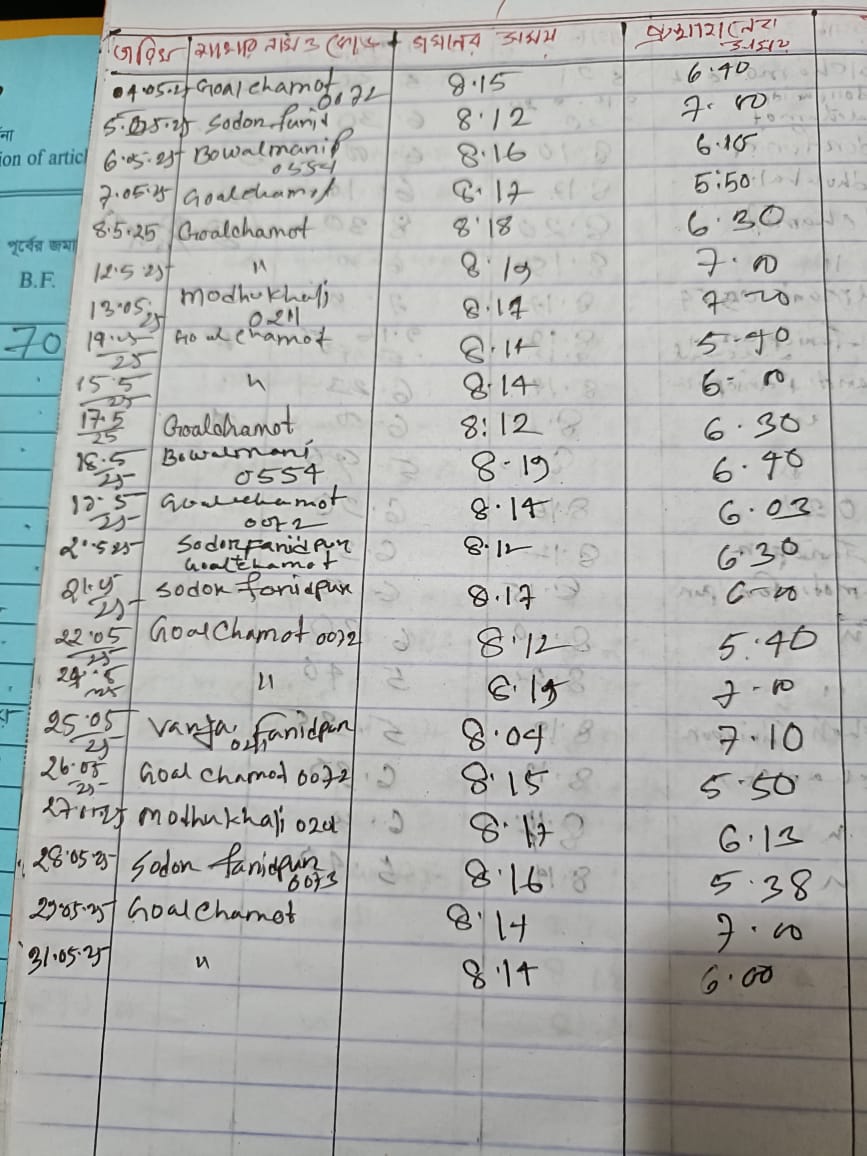 তারিখ শাখার নাম ও কোড গমনের সময় প্রস্থানের সময়
04.05.25 Goalchamot 0072 8.15 6.40
5.05.25 Sodor farid 8.12 7.00
6.05.25 Bowalmari 0554 8.16 6.105
7.05.25 Goalchamot 8.17 5:50
8.5.25 Goalchamot 8.18 6.30
12.5.25 " 8.19 7.00
13.05.25 Modhukhali 0211 8.17 7.20
Goalchamot 8.14 5.40
15.5 25 " 8.14 6-00
17.5 25 Goalchamot 8:12 6.30
18.5 25 Bowalmari 0554 8-19 6.40
Goalchamot 0072 8.14 6.03
20.5.25 Sodor faridpur Goalchamot 8.12 6.30
21.5 25 Sodor faridpur 8.17
22.05 25 GoalChamot 0072 8.12 5.40
24.5 25 " 8.15 7-00
25.05 25 Vanga, faridpur 8.04 7.10
26.05 25 Goal Chamot 0072 8.15 5.50
27.05.25 Modhukhali 8.17 6.13
28.05.25 Sodor faridpur 0073 8.16 5.38
29.05.25 GoalChamot 8.14 7.00
31.05.25 " 8.14 6.00
ion of articl
পূর্বের জমা
B.F.
70